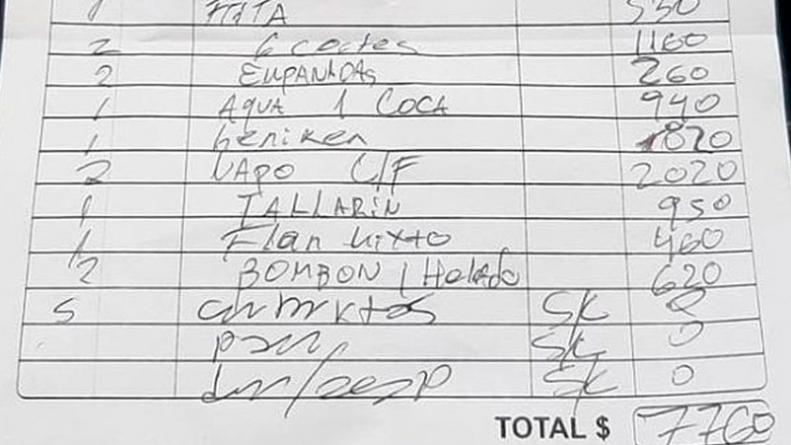 1 530
2 6 cortes 1160
2 EMPANADAS 260
1 AQUA 1 COCA 940
1 heniken 820
2 VAPO C/F 2020
1 TALLARIN 950
1 Flan Mixto 460
2 BOMBON 1 Helado 620
5 cubiertos SK 0
pan SK 0
SK 0
TOTAL $ 7760